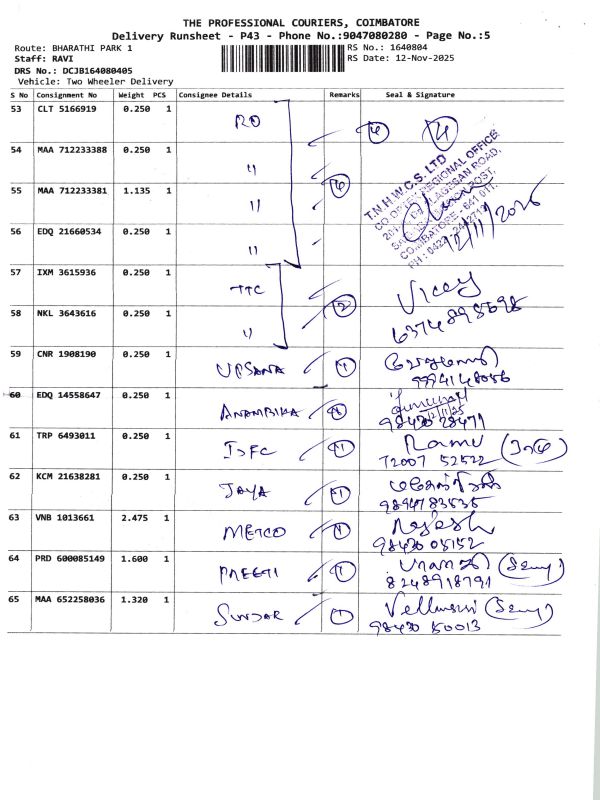 THE PROFESSIONAL COURIERS, COIMBATORE
Delivery Runsheet - P43 - Phone No.:9047080280 - Page No.:5
Route: BHARATHI PARK 1 RS No.: 1640804
Staff: RAVI RS Date: 12-Nov-2025
DRS No.: DCJB164080405
Vehicle: Two Wheeler Delivery
S No Consignment No Weight PCS Consignee Details Remarks Seal & Signature
53 CLT 5166919 0.250 1 RO 4 4
54 MAA 712233388 0.250 1 "
55 MAA 712233381 1.135 1 "
56 EDQ 21660534 0.250 1 "
T.N.H.W.C.S. LTD
REGIONAL OFFICE
POST,
COIMBATORE - 641 011.
12/11/2025
57 IXM 3615936 0.250 1 TTC
58 NKL 3643616 0.250 1 " 2
59 CNR 1908190 0.250 1 UPSANA 1
60 EDQ 14558647 0.250 1
12/11/25
98430 28471
61 TRP 6493011 0.250 1 IDFC 1 Ramu
72007 52522
62 KCM 21638281 0.250 1 JAYA 1
9894783535
63 VNB 1013661 2.475 1 METCO 1 Rajesh
98430 05152
64 PRD 600085149 1.600 1 PREETI 1
8248918791
65 MAA 652258036 1.320 1 SUNDAR 1
98430 50013